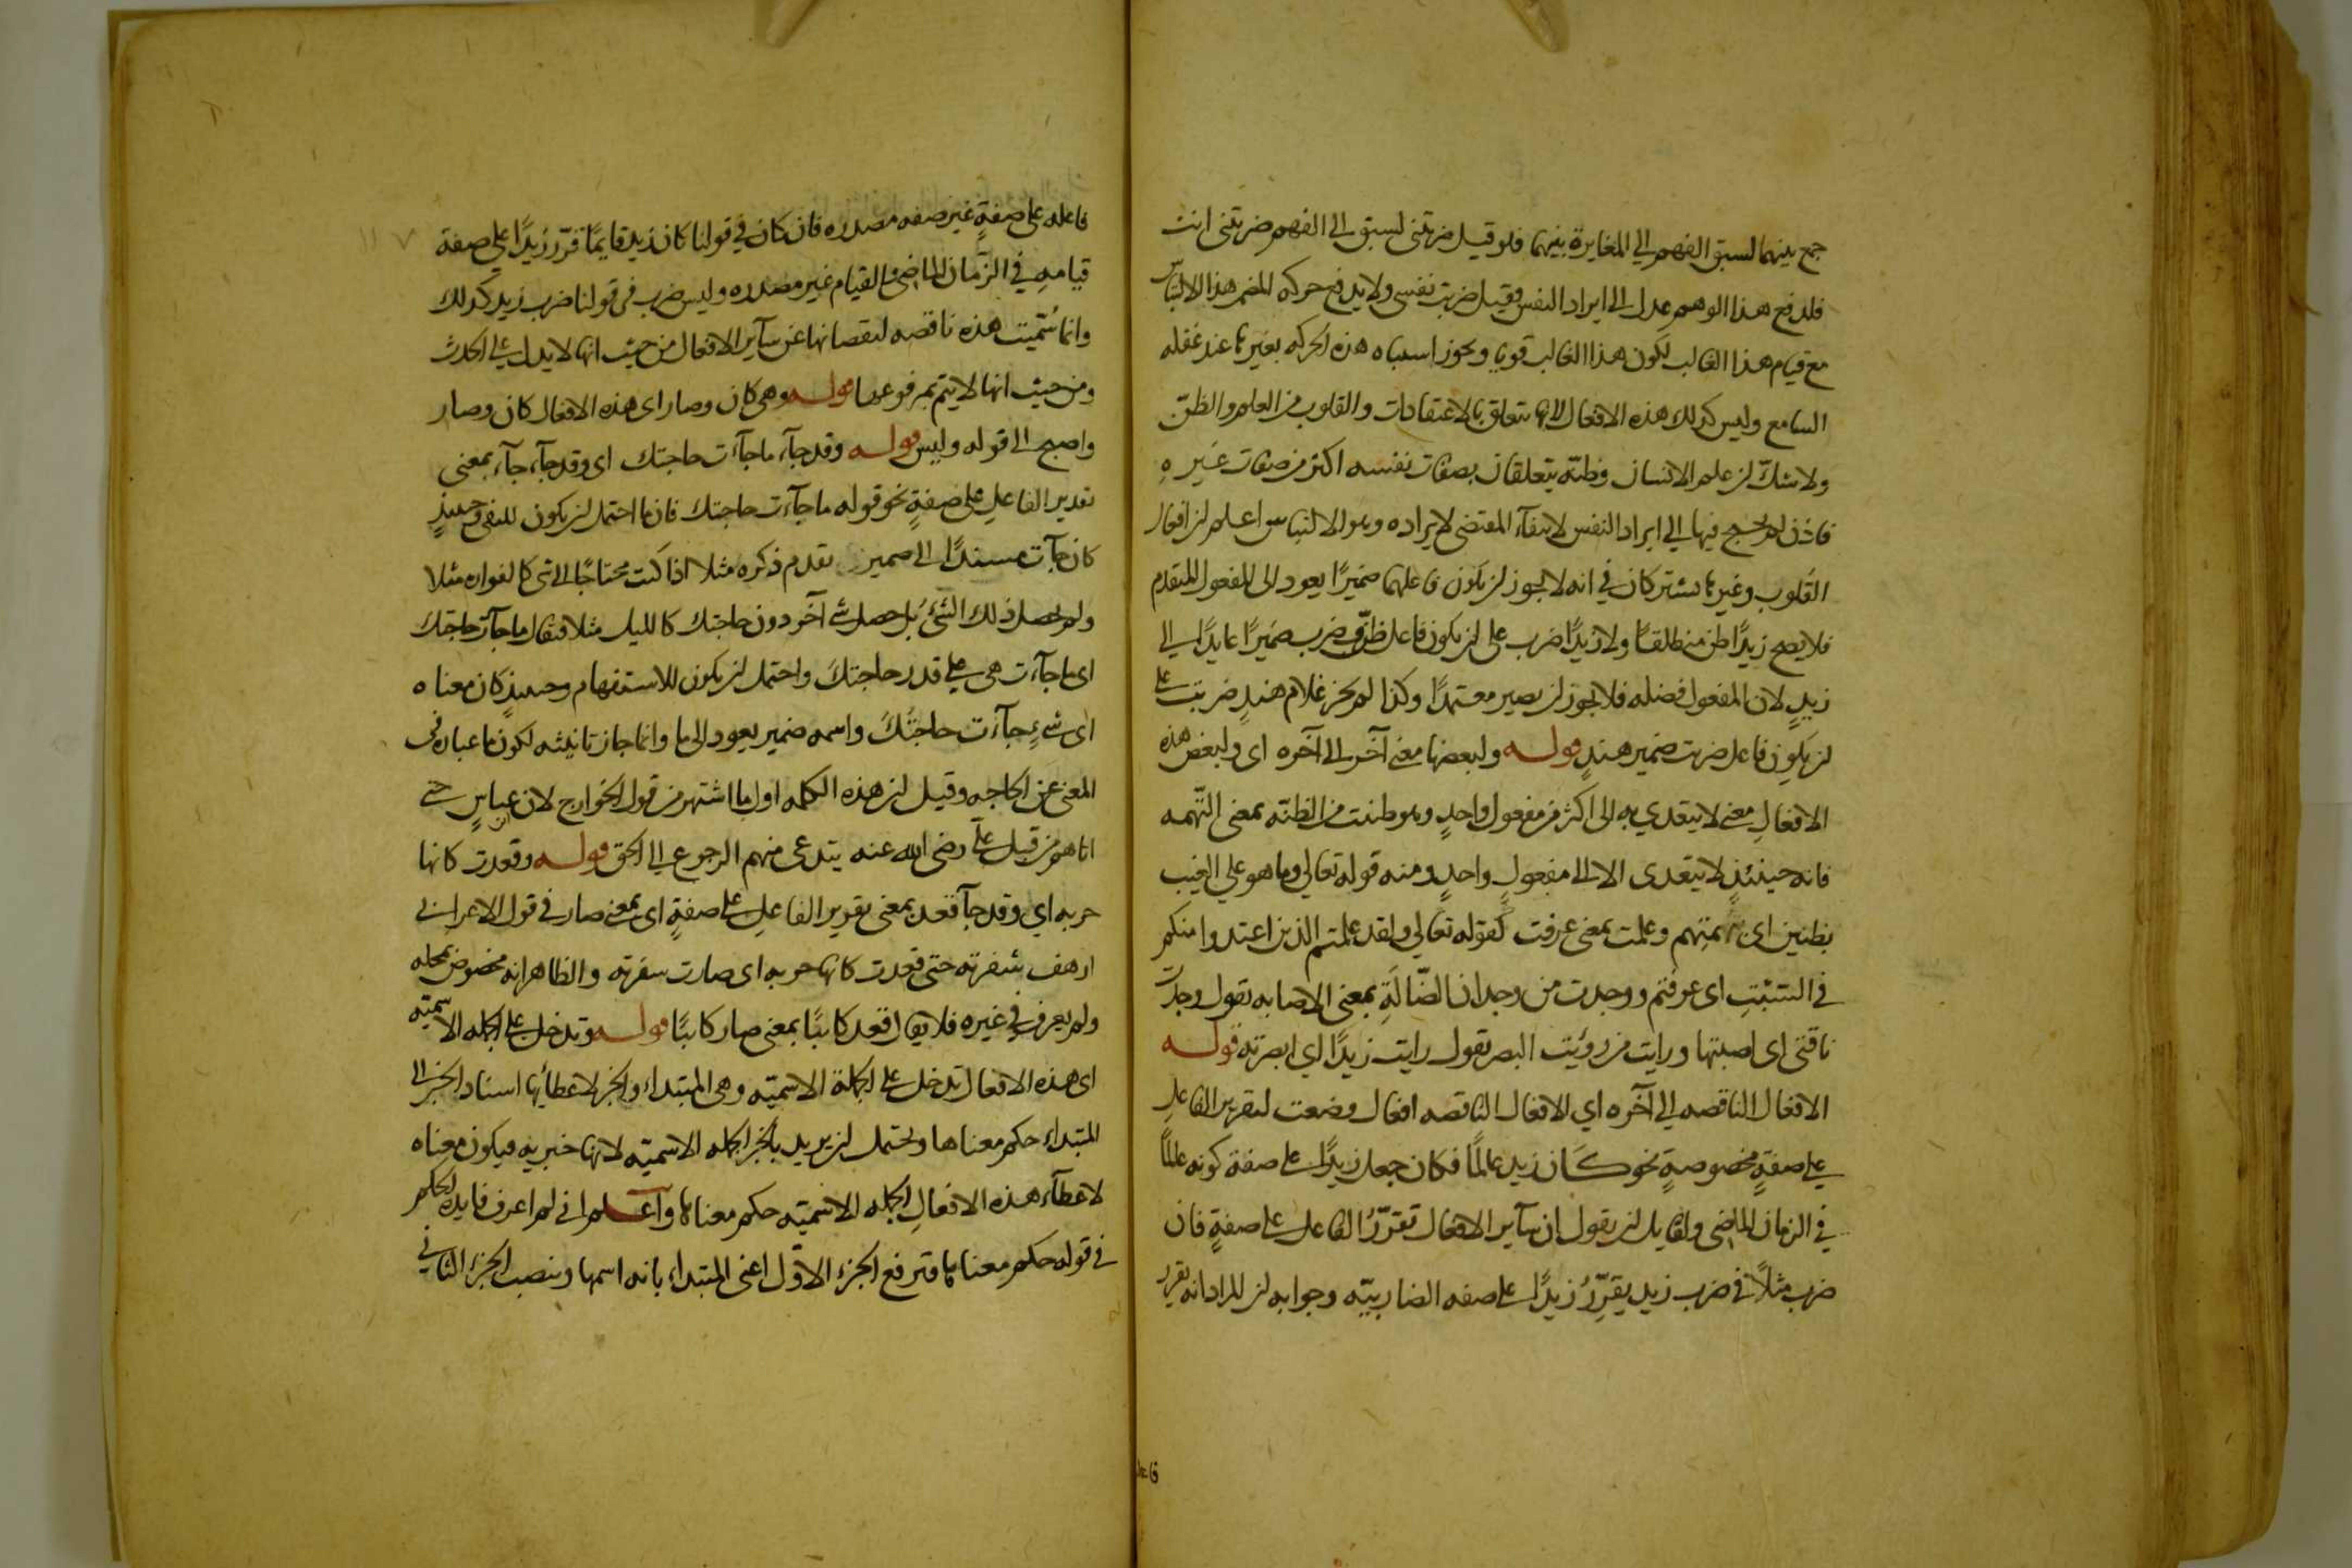 جمع بينهما لسبق الفهم الي المغايرة بينهما فلو قيل ضربتنى لسبق الى الفهم ضربتنى انت
فلدفع هذا الوهم عدل الى ايراد النفس فقيل ضربت نفسى ولا يدفع حركه المضمر هذا الالتباس
مع قيام هذا الغالب لكون هذا الغالب قويا ويجوز اشتباه هذه الحركه بغيرها عند غفله
السامع وليس كذلك هذه الافعال لانها تتعلق بالاعتقادات والقلوب من العلم والظنّ
ولا شكّ ان علم الانسان وظنّه يتعلقان بصفات نفسه اكثر من صفات غيره
فاذن لم يحتج فيها الي ايراد النفس لانتفآء المقتضى لايراده وهو الالتباس اعلم ان افعال
القلوب وغيرها تشتركان في انه لا يجوز ان يكون فاعلهما ضميرًا يعود الى المفعول المتقدم
فلا يصح زيدًا ظن منطلقًا ولا زيدًا ضرب على ان يكون فاعل ظنّ وضرب ضميرًا عايدًا الي
زيدٍ لان المفعول فضله فلا يجوز ان يصير معتمدًا وكذا لم يجز غلام هندٍ ضربت على
ان يكون فاعل ضربت ضمير هندٍ قوله ولبعضها معنى آخر الى آخره اى ولبعض هذه
الافعالِ معنى لا يتعدي به الى اكثر من مفعول واحدٍ وهو ظننت من الظنّه بمعنى التّهمه
فانه حينئذٍ لا يتعدى الا الى مفعولٍ واحدٍ ومنه قوله تعالي وما هو علي الغيب
بظنين اى بمتهم وعلمت بمعنى عرفت كقوله تعالي ولقد علمتم الذين اعتدوا منكم
في السّبْتِ اى عرفتم ووجدت من وجدان الضّالّةِ بمعنى الاصابه تقول وجدت
ناقتى اى اصبتها ورايت من رؤيت البصر تقول رايت زيدًا اي ابصرته قوله
الافعال الناقصه الي آخره اي الافعال الناقصه افعال وضعت لتقرير الفاعلِ
علي صفةٍ مخصوصةٍ نحو كان زيد عالمًا فكان جعل زيدًا على صفة كونه عالمًا
في الزمان الماضى ولقايل ان يقول ان سآير الافعال تقرّرُ الفاعل على صفةٍ فان
ضرب مثلاً في ضرب زيد يقرّرُ زيدًا على صفه الضاربيّه وجوابه ان المراد انه يقرر
فاعله
فاعله على صفةٍ غير صفه مصدره فان كان في قولنا كان زيد قايمًا قرّر زيدًا على صفة
قيامهِ في الزّمان الماضى والقيام غير مصدره وليس ضرب فى قولنا ضرب زيد كذلك
وانما سُمّيت هذه ناقصه لنقصانها عن سآير الافعال من حيث انها لا يدل على الحدث
ومن حيث انها لا يتم بمرفوعها قوله وهى كان وصار اى هذه الافعال كان وصار
واصبح الى قوله وليس قوله وقد جآء ما جآءت حاجتك اى وقد جآء جآء بمعنى
تقدير الفاعلِ على صفةٍ نحو قوله ما جآءت حاجتك فان ما احتمل ان يكون للنفى وحينئذٍ
كان جآءت مسندًا الى ضمير تقدم ذكره مثلا اذا كنت محتاجًا الى شى مثلا
ولم يحصل ذلك الشئ بل حصل شئ آخر دون حاجتك كالليل مثلا فتقال ما جآءت حاجتك
اى ما جآءت هى على قدر حاجتكَ واحتمل ان يكون للاستفهام وحينئذٍ كان معناه
اى شئٍ جآءت حاجتَكَ واسمه ضمير يعود الى ما وانما جاز تانيثه لكون ما عباره فى
المعنى عن الحاجه وقيل ان هذه الكلمه اول ما اشتهر من قول الخوارج لابن عباسٍ حتى
اتاهم من قبل علىّ رضى الله عنه يتدعى منهم الرجوع الى الحق قوله وقعدت كانها
حربه اي وقد جآ قعد بمعنى تقرير الفاعل على صفةٍ اى بمعنى صار في قول الاعرابى
ارهف شفرته حتى قعدت كانها حربه اى صارت شفرته والظاهر انه مخصوص بمحله
ولم يعرف في غيره فلا يقال قعد كاتبًا بمعنى صار كاتبًا قوله وتدخل على الجمله الاسميّه
اى هذه الافعال تدخل على الجملة الاسميّه وهى المبتداء والخبر لاعطآئها اسناد الخبر الى
المبتداء حكم معناها ويحتمل ان يريد بالخبر الجمله الاسميّه لانها خبريه فيكون معناه
لاعطآء هذه الافعالِ الجمله الاسميّه حكم معناها واعلم انى لم اعرف فايده الحكم
في قوله حكم معناها فترفع الجزء الاوّل اعنى المبتداء بانه اسمها وينصب الجزء الثاني